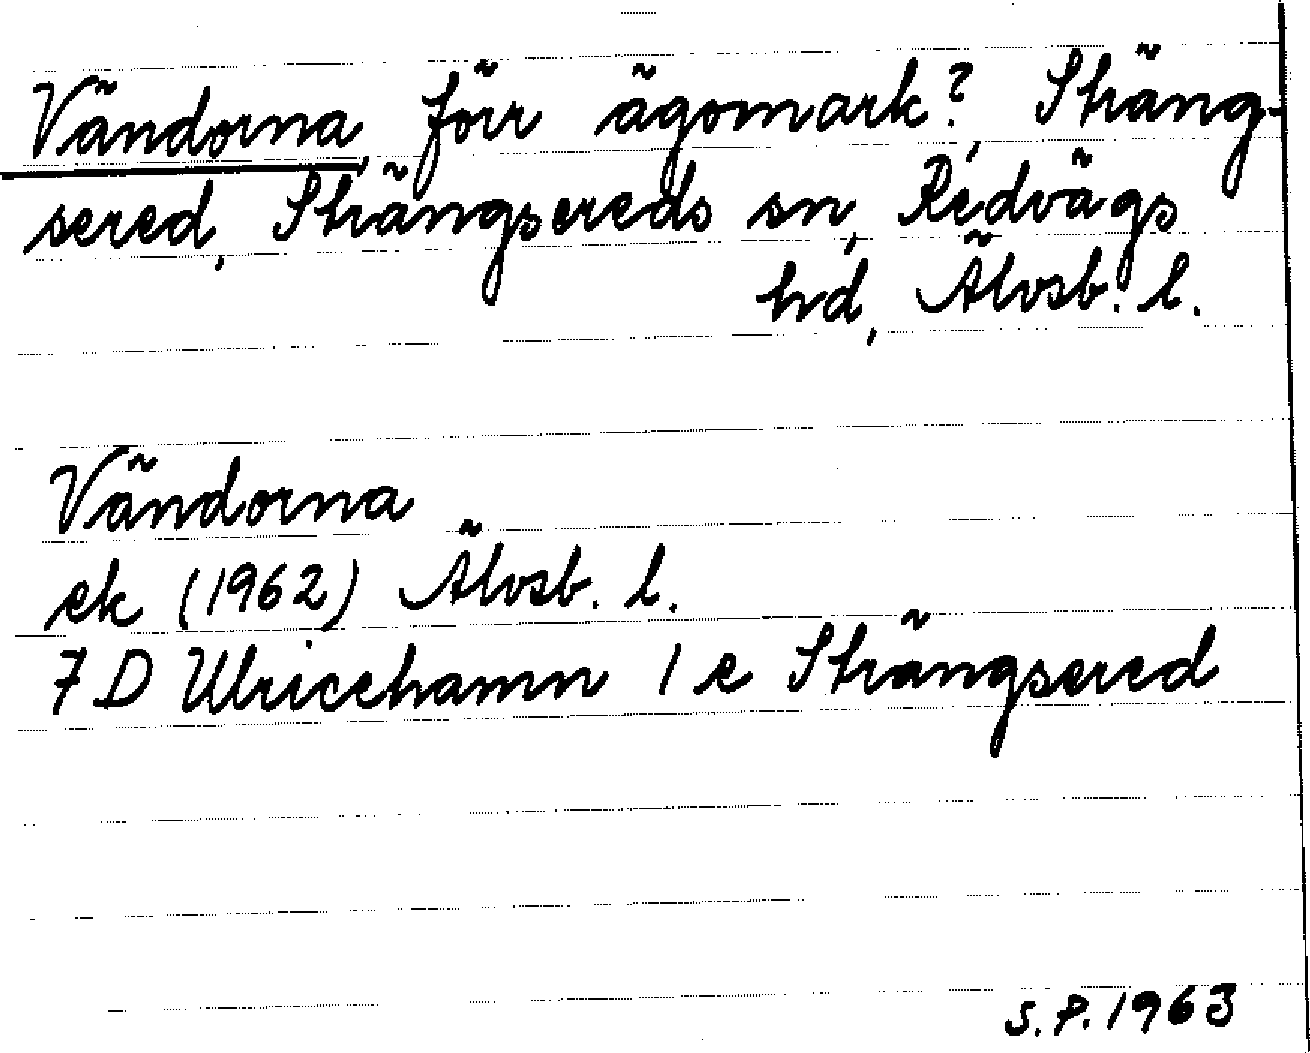 Vändorna, förr ägomark?, Sträng-
sered, Strängsereds sn, Redvägs
hd, Älvsb. l.
Vändorna
ek (1962) Älvsb. l.
7 D Ulricehamn 1 e Strängsered
S.P. 1963